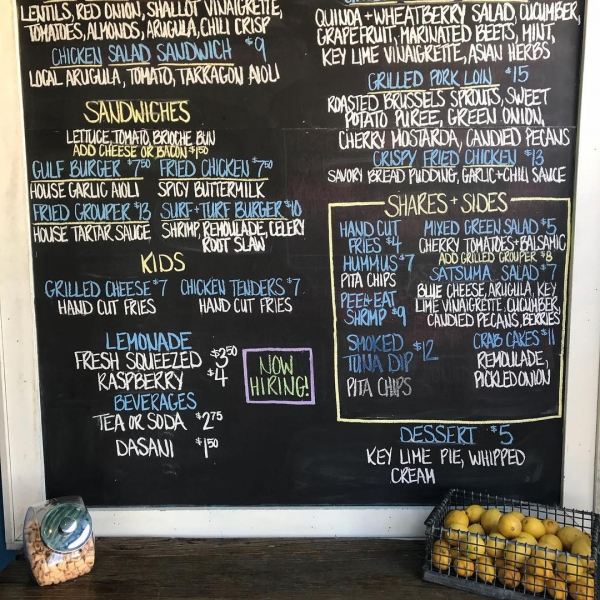 LENTILS, RED ONION, SHALLOT VINAIGRETTE,
TOMATOES, ALMONDS, ARUGULA, CHILI CRISP
CHICKEN SALAD SANDWICH $9
LOCAL ARUGULA, TOMATO, TARRAGON AIOLI
SANDWICHES
LETTUCE, TOMATO, BRIOCHE BUN
ADD CHEESE OR BACON $1.50
GULF BURGER $7.50 FRIED CHICKEN $7.50
HOUSE GARLIC AIOLI SPICY BUTTERMILK
FRIED GROUPER $13 SURF+TURF BURGER $10
HOUSE TARTAR SAUCE SHRIMP REMOULADE, CELERY
ROOT SLAW
KIDS
GRILLED CHEESE $7 CHICKEN TENDERS $7
HAND CUT FRIES HAND CUT FRIES
LEMONADE
FRESH SQUEEZED $3.50
RASPBERRY $4
BEVERAGES
TEA OR SODA $2.75
DASANI $1.50
NOW
HIRING!
QUINOA + WHEATBERRY SALAD, CUCUMBER,
GRAPEFRUIT, MARINATED BEETS, MINT,
KEY LIME VINAIGRETTE, ASIAN HERBS
GRILLED PORK LOIN $15
ROASTED BRUSSELS SPROUTS, SWEET
POTATO PUREE, GREEN ONION,
CHERRY MOSTARDA, CANDIED PECANS
CRISPY FRIED CHICKEN $13
SAVORY BREAD PUDDING, GARLIC+CHILI SAUCE
SHARES + SIDES
HAND CUT
FRIES $4
HUMMUS $7
PITA CHIPS
PEEL+EAT
SHRIMP $9
SMOKED
TUNA DIP $12
PITA CHIPS
MIXED GREEN SALAD $5
CHERRY TOMATOES+BALSAMIC
ADD GRILLED GROUPER $8
SATSUMA SALAD $7
BLUE CHEESE, ARUGULA, KEY
LIME VINAIGRETTE, CUCUMBER,
CANDIED PECANS, BERRIES
CRAB CAKES $11
REMOULADE,
PICKLED ONION
DESSERT $5
KEY LIME PIE, WHIPPED
CREAM